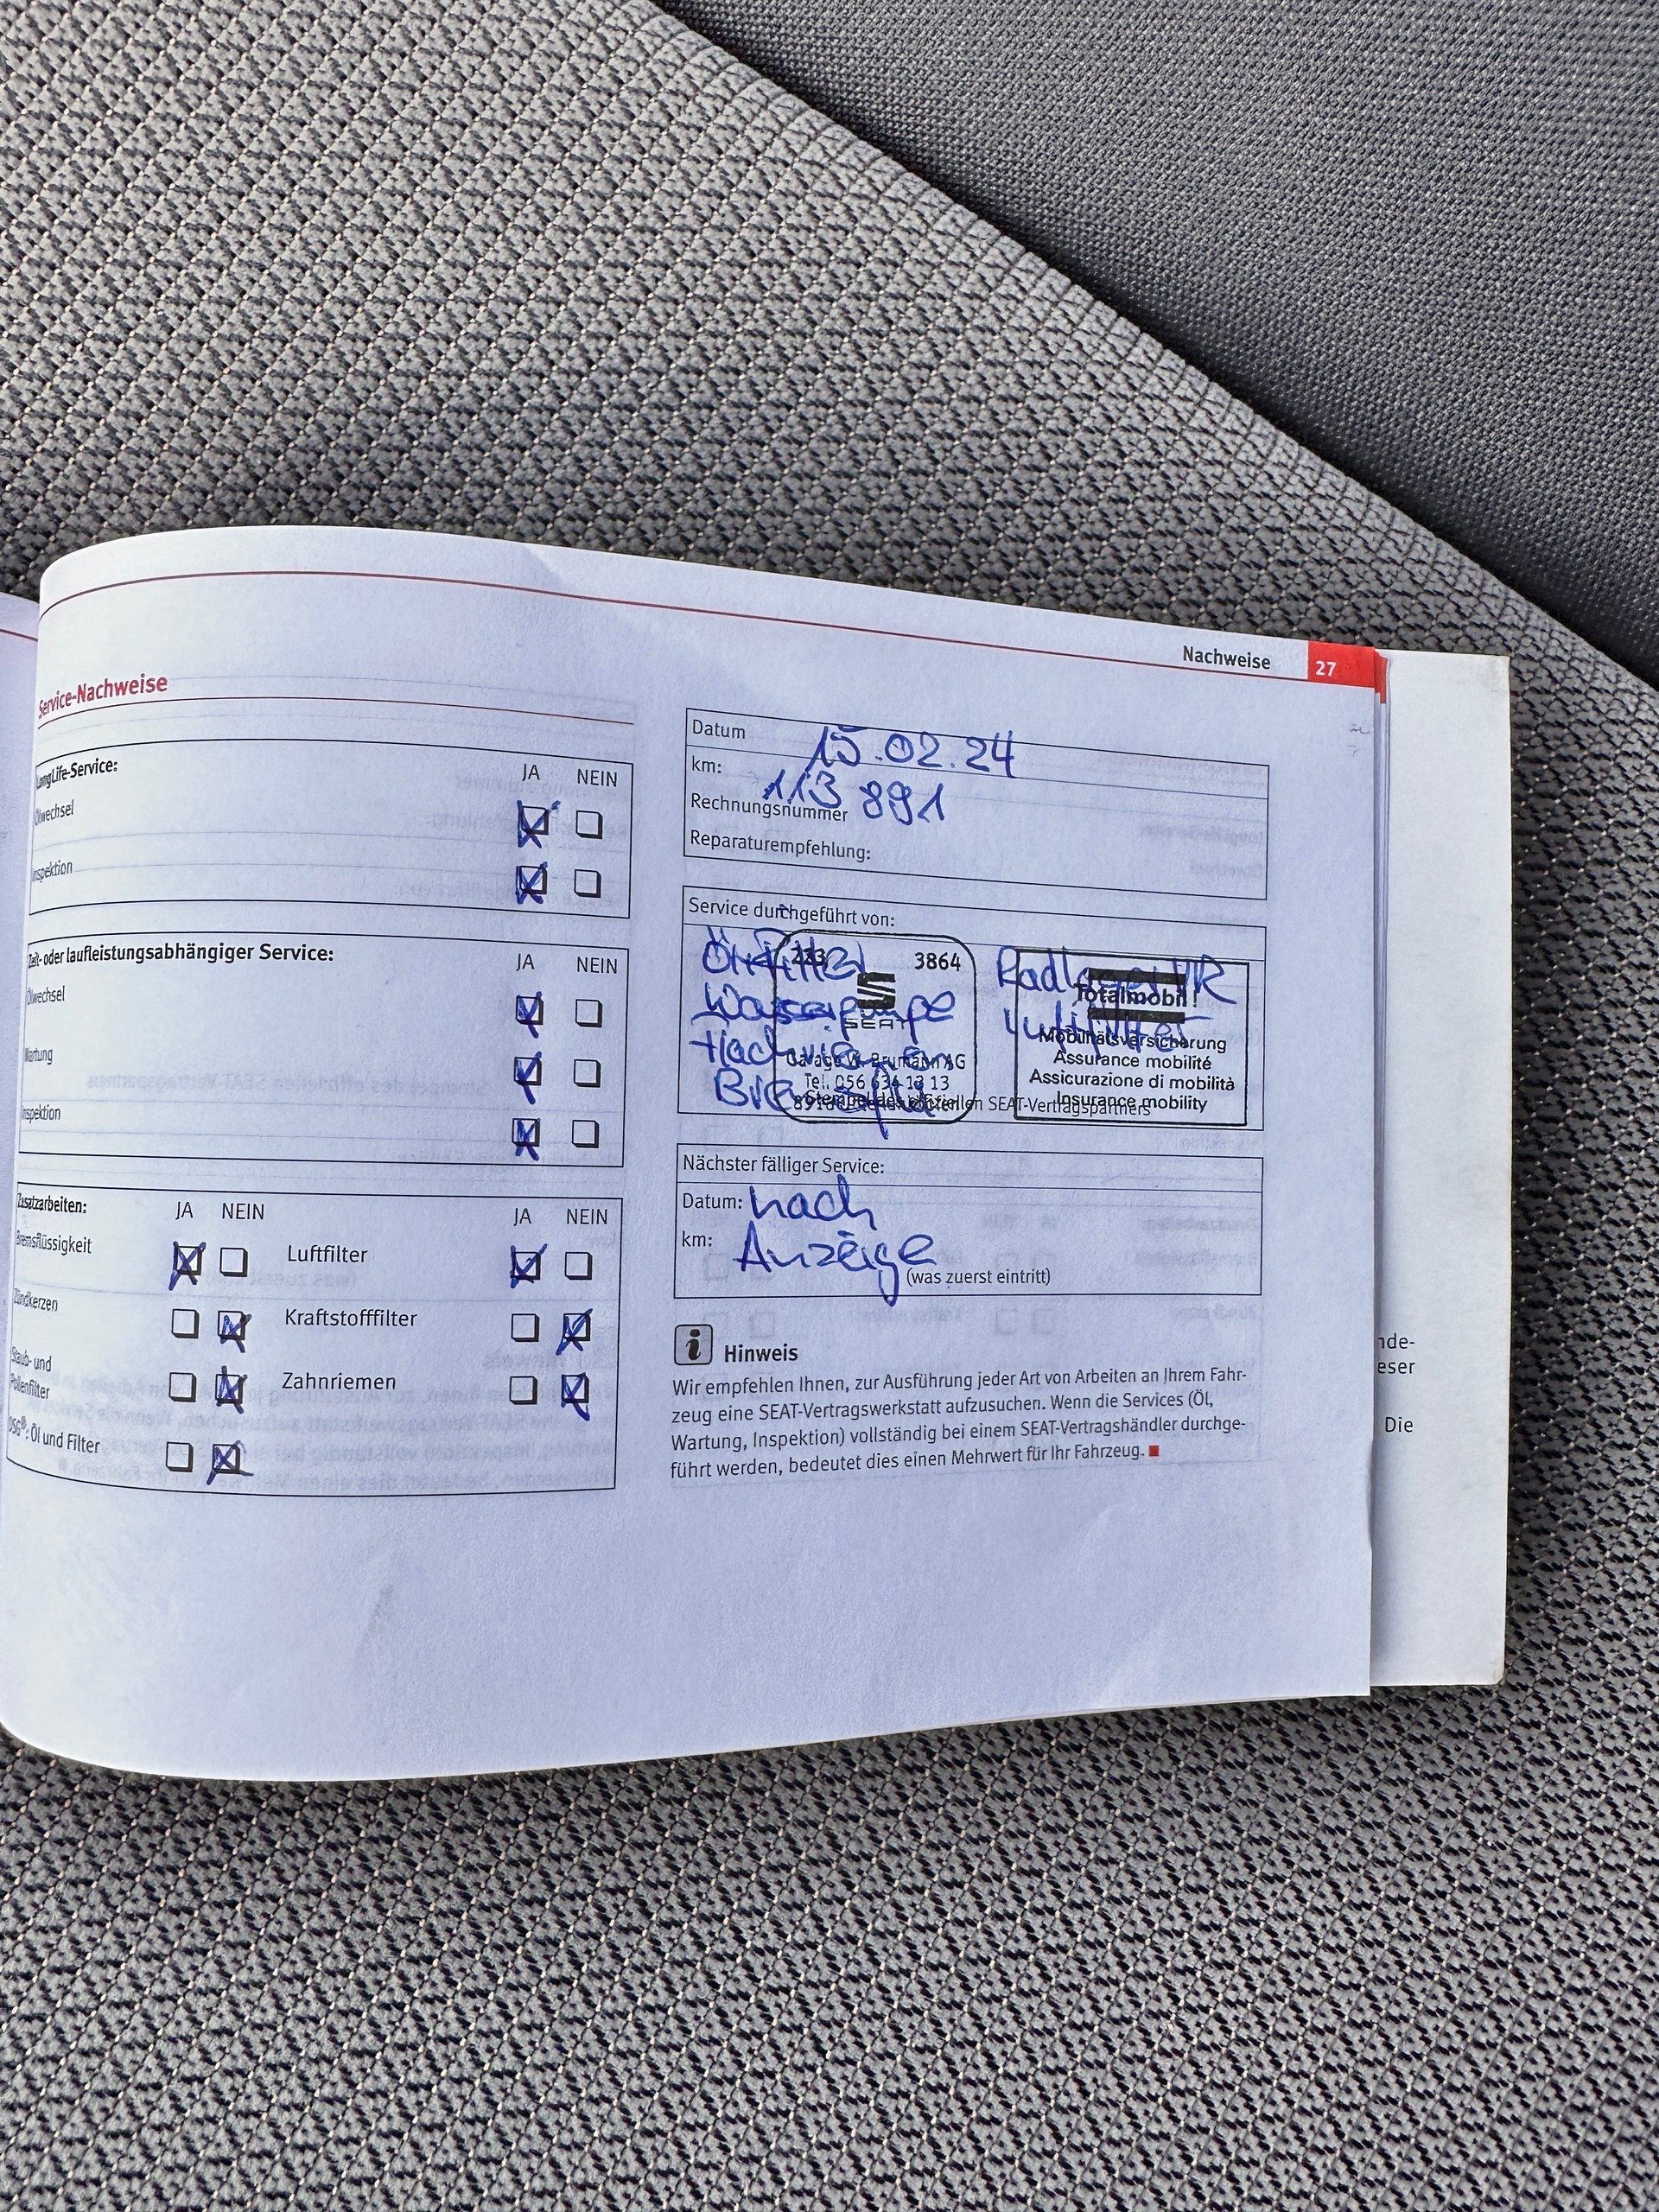 Nachweise 27
Service-Nachweise
LongLife-Service: JA NEIN
Ölwechsel
Inspektion
Zeit- oder laufleistungsabhängiger Service: JA NEIN
Ölwechsel
Wartung
Inspektion
Zusatzarbeiten: JA NEIN JA NEIN
Bremsflüssigkeit Luftfilter
Zündkerzen Kraftstofffilter
Staub- und
Pollenfilter Zahnriemen
DSG®: Öl und Filter
Datum 15.02.24
km: 113 891
Rechnungsnummer
Reparaturempfehlung:
Service durchgeführt von:
Öl+Filter
Wasserpumpe
Radlager VR
Luftfilter
3864
SEAT
Garage W. Brumann AG
Tel. 056 634 13 13
Totalmobil!
Mobilitätsversicherung
Assurance mobilité
Assicurazione di mobilità
Insurance mobility
Stempel des offiziellen SEAT-Vertragspartners
Nächster fälliger Service:
Datum: nach
km: Anzeige
(was zuerst eintritt)
i Hinweis
Wir empfehlen Ihnen, zur Ausführung jeder Art von Arbeiten an Ihrem Fahr-
zeug eine SEAT-Vertragswerkstatt aufzusuchen. Wenn die Services (Öl,
Wartung, Inspektion) vollständig bei einem SEAT-Vertragshändler durchge-
führt werden, bedeutet dies einen Mehrwert für Ihr Fahrzeug.
nde-
eser
Die